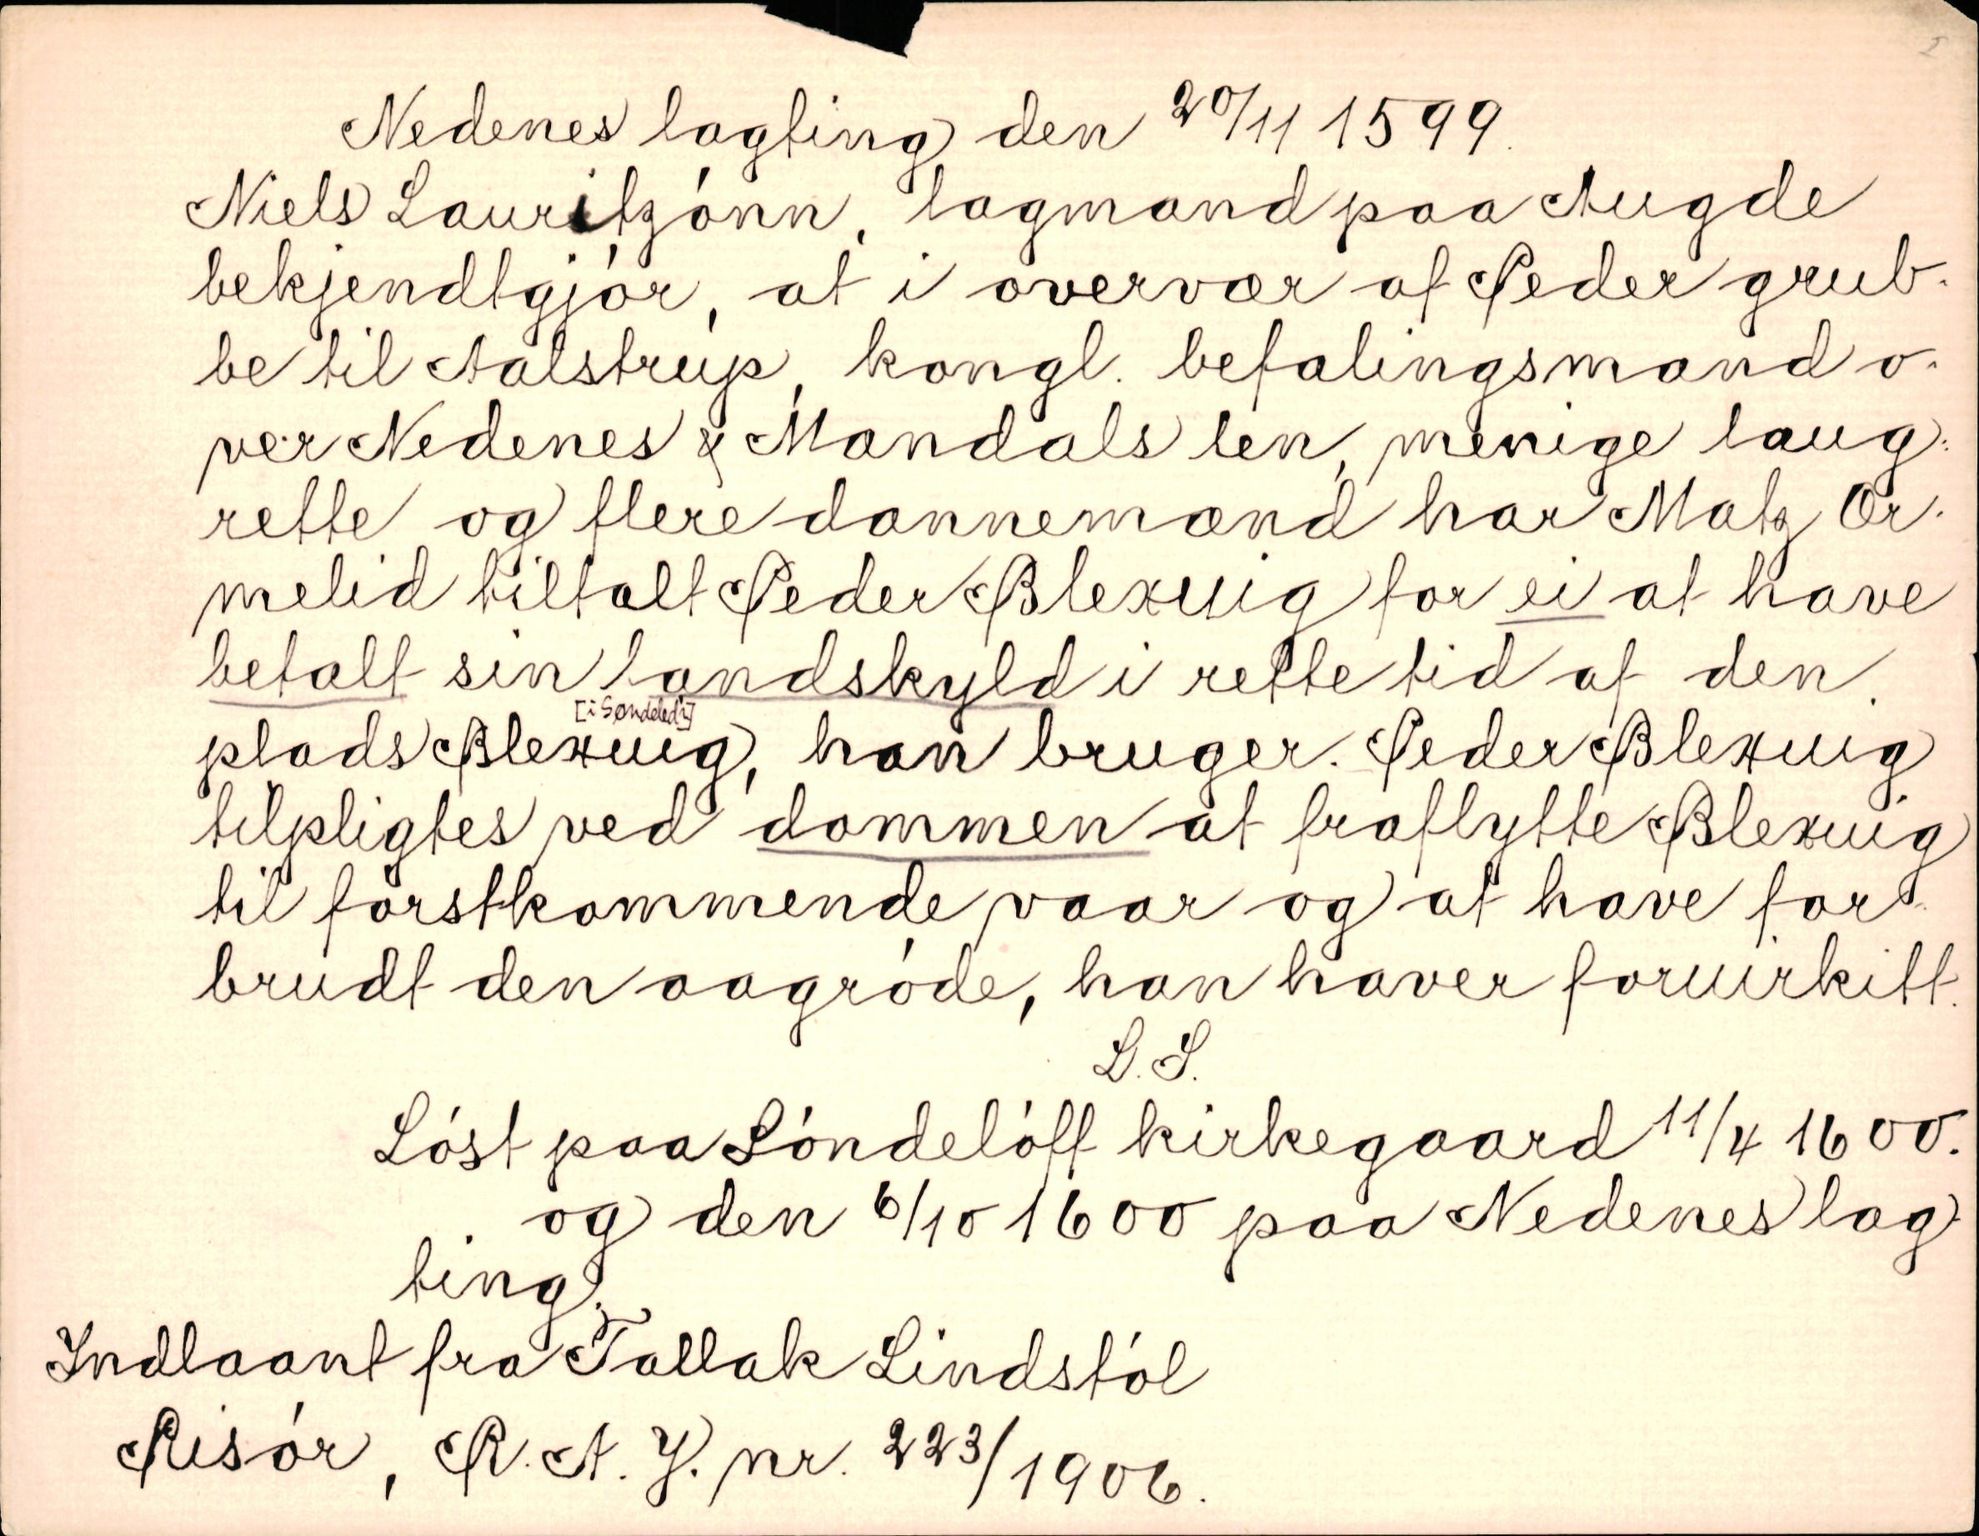 Nedenes lagting den 20/11 1599.
Niels Lauritzónn, lagmand paa Augde
bekjendtgjór, at i overvær af Peder grub-
be til Aalstrup, kongl. befalingsmand o-
ver Nedenes & Mandals len, menige laug-
rette og flere dannemænd har Matz Ør-
melid tiltalt Peder Blexuig for ei at have
betalt sin landskyld i rette tid af den
[i Søndeled]
plads Blexuig, han bruger. Peder Blexuig
tilpligtes ved dommen at fraflytte Blexuig
til fórstkommende vaar og at have for-
brudt den aagróde, han haver foruirkitt.
L. S.
Lóst paa Sóndelóff kirkegaard 11/4 1600.
og den 6/10 1600 paa Nedenes lag-
ting.
Indlaant fra Tallak Lindstól
Risór, R. A. J. nr. 223/1906.